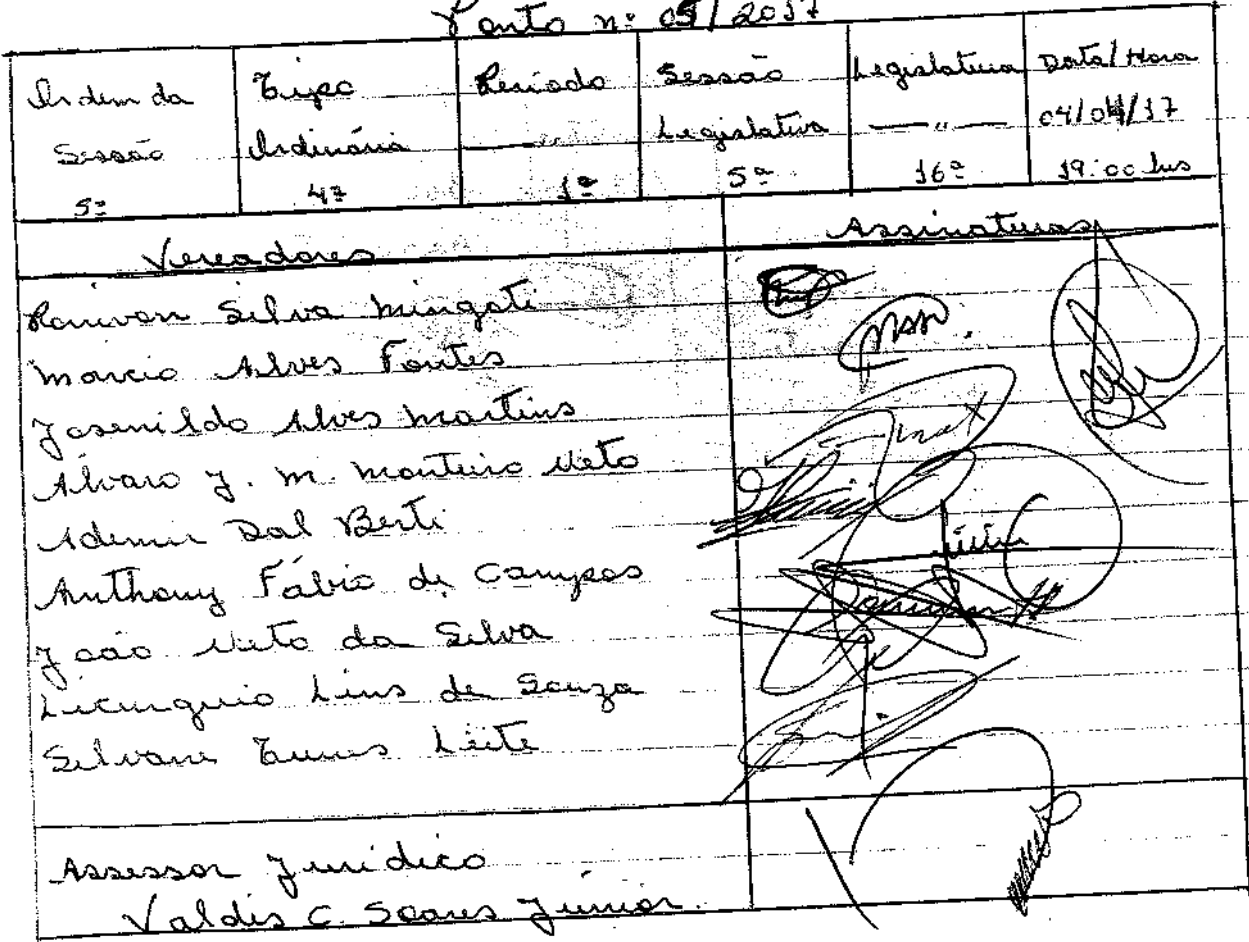 Ponto nº 05/2017
Ordem da Sessão 5ª
Tipo Ordinária 4ª
Período —〃— 1ª
Sessão Legislativa 5ª
Legislatura —〃— 16ª
Data/Hora 04/04/17 19:00 hrs
Vereadores
Assinaturas
Ronivon Silva Mingoti
Marcio Alves Fontes
Josenildo Alves Martins
Álvaro J. M. Monteiro Neto
Ademir Dal Berti
Anthony Fábio de Campos
João Neto da Silva
Licurguio Lins de Souza
Silvane Nunes Leite
Assessor Jurídico
Valdis C. Soares Júnior.